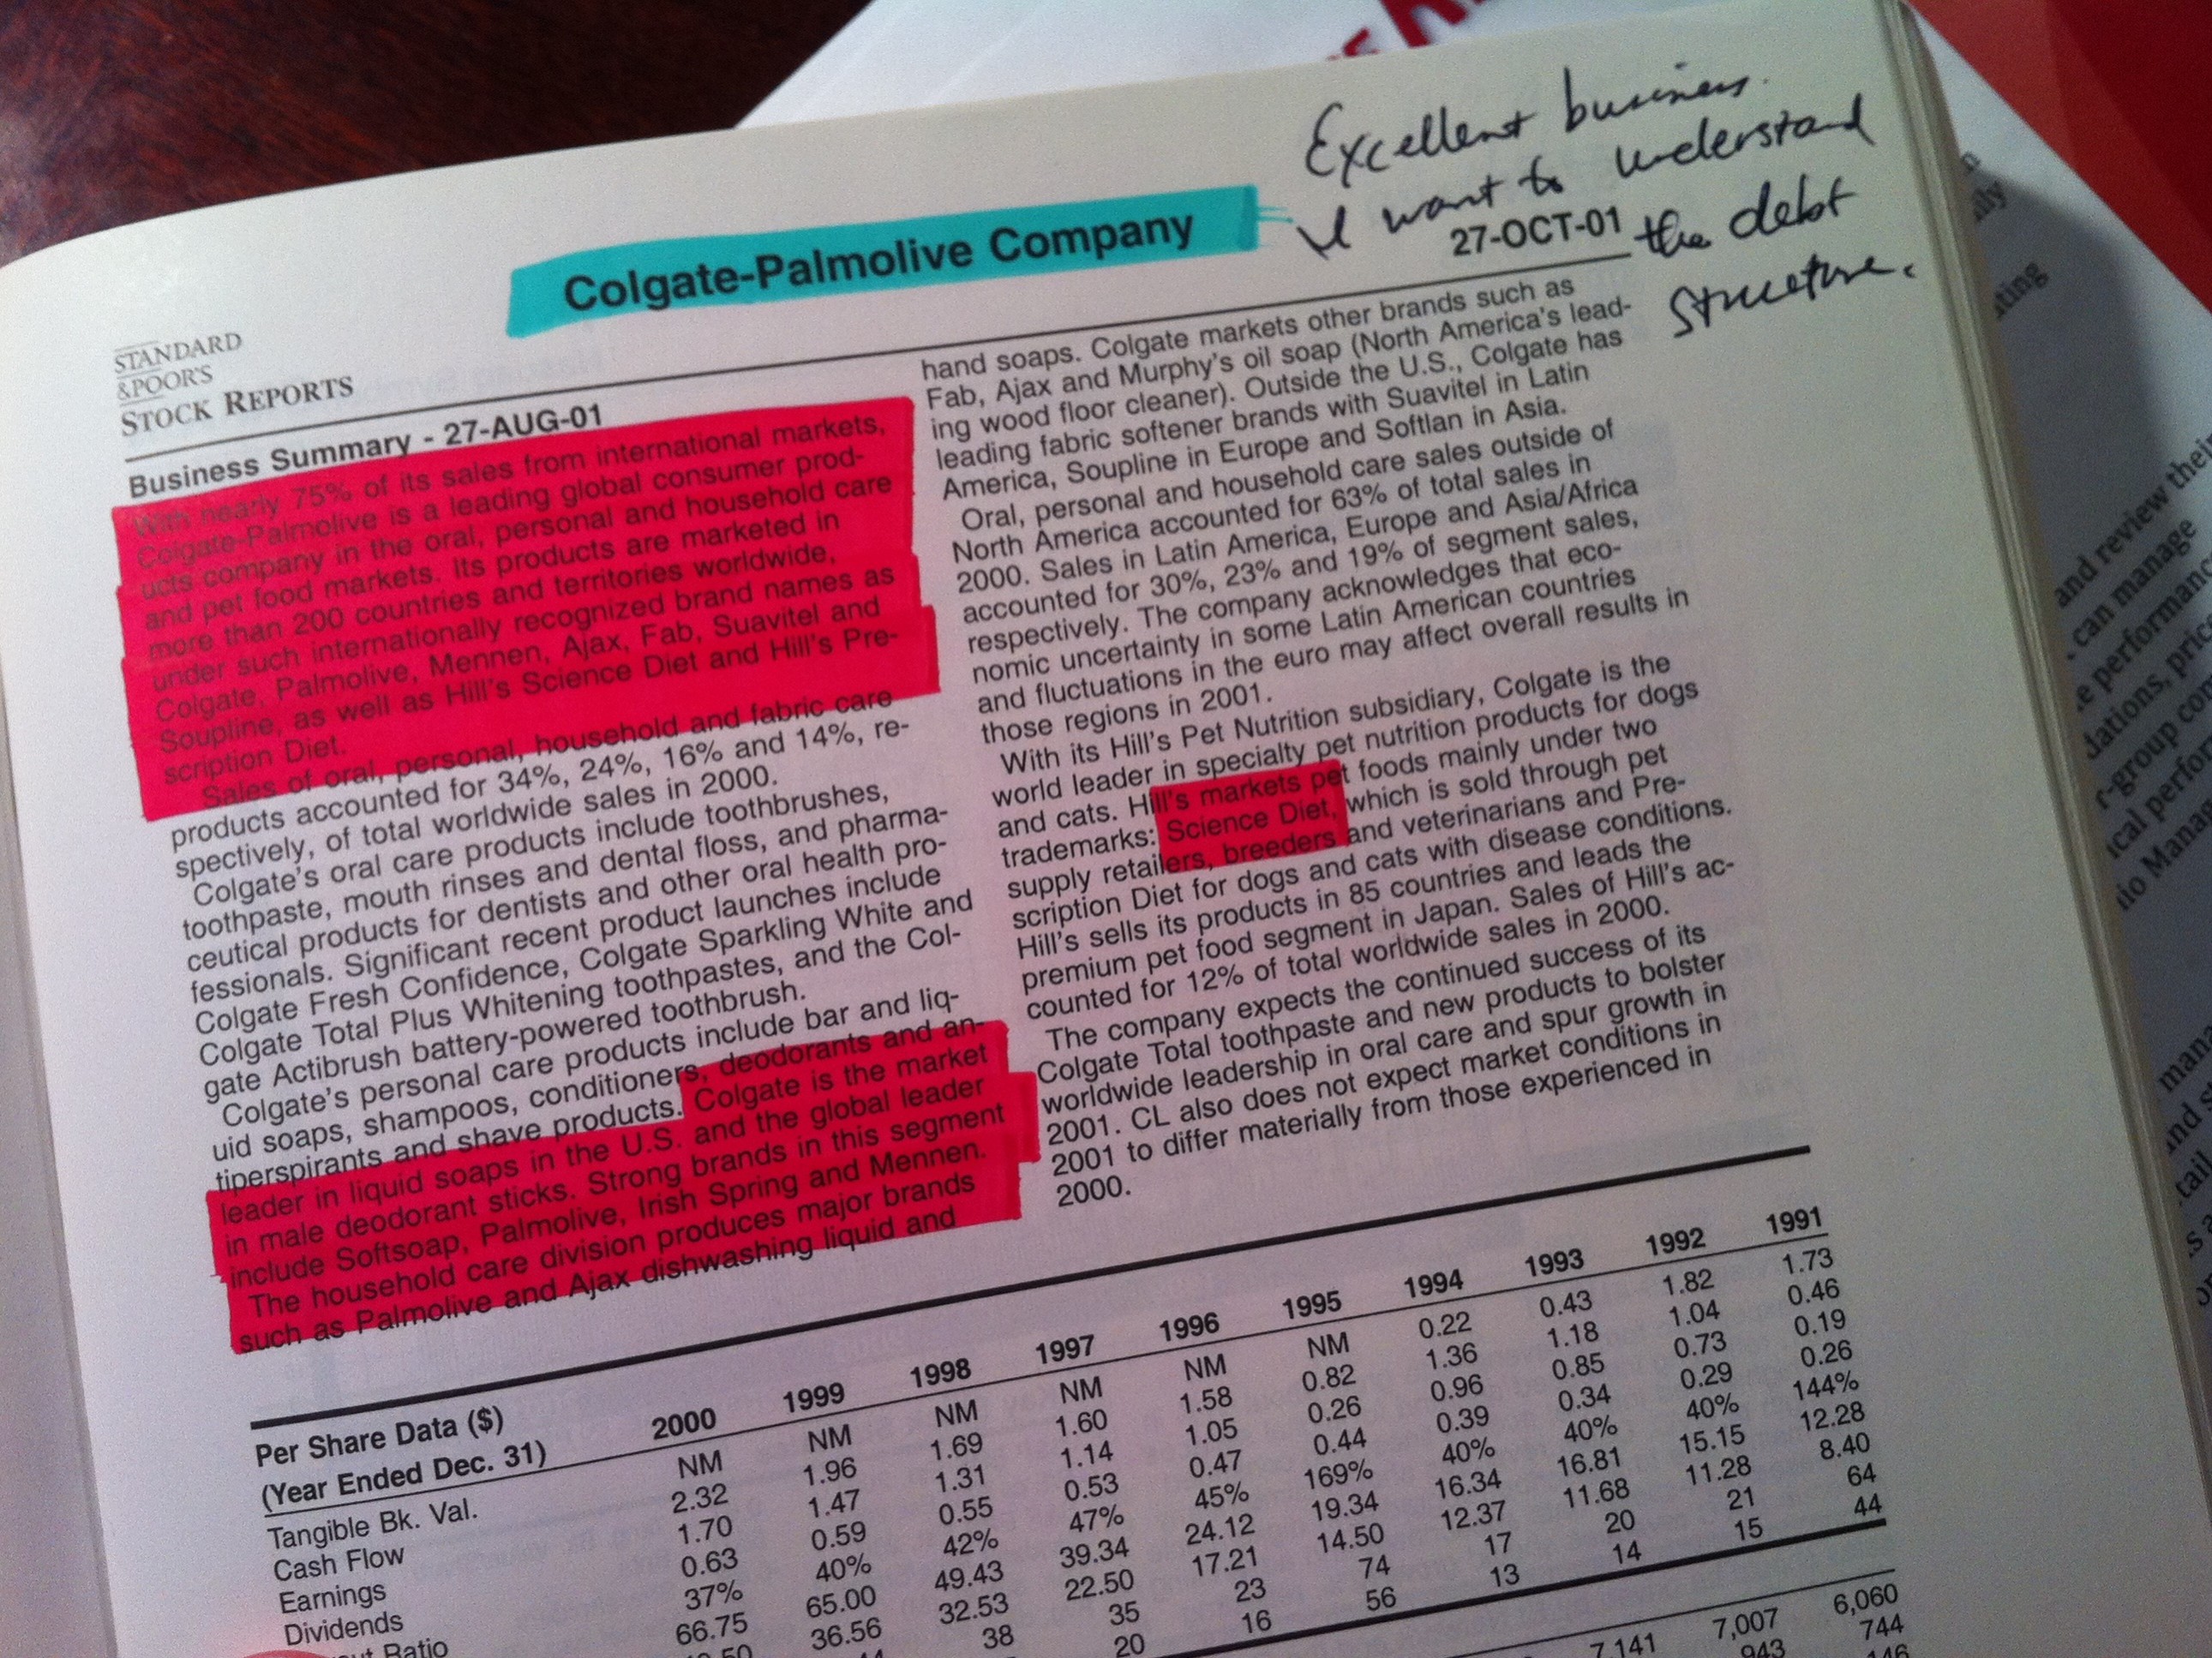 Excellent business.
I want to understand
the debt
structure.
Colgate-Palmolive Company
27-OCT-01
STANDARD
&POOR'S
STOCK REPORTS
Business Summary - 27-AUG-01
With nearly 75% of its sales from international markets,
Colgate-Palmolive is a leading global consumer prod-
ucts company in the oral, personal and household care
and pet food markets. Its products are marketed in
more than 200 countries and territories worldwide,
under such internationally recognized brand names as
Colgate, Palmolive, Mennen, Ajax, Fab, Suavitel and
Soupline, as well as Hill's Science Diet and Hill's Pre-
scription Diet.
Sales of oral, personal, household and fabric care
products accounted for 34%, 24%, 16% and 14%, re-
spectively, of total worldwide sales in 2000.
Colgate's oral care products include toothbrushes,
toothpaste, mouth rinses and dental floss, and pharma-
ceutical products for dentists and other oral health pro-
fessionals. Significant recent product launches include
Colgate Fresh Confidence, Colgate Sparkling White and
Colgate Total Plus Whitening toothpastes, and the Col-
gate Actibrush battery-powered toothbrush.
Colgate's personal care products include bar and liq-
uid soaps, shampoos, conditioners, deodorants and an-
tiperspirants and shave products. Colgate is the market
leader in liquid soaps in the U.S. and the global leader
in male deodorant sticks. Strong brands in this segment
include Softsoap, Palmolive, Irish Spring and Mennen.
The household care division produces major brands
such as Palmolive and Ajax dishwashing liquid and
hand soaps. Colgate markets other brands such as
Fab, Ajax and Murphy's oil soap (North America's lead-
ing wood floor cleaner). Outside the U.S., Colgate has
leading fabric softener brands with Suavitel in Latin
America, Soupline in Europe and Softlan in Asia.
Oral, personal and household care sales outside of
North America accounted for 63% of total sales in
2000. Sales in Latin America, Europe and Asia/Africa
accounted for 30%, 23% and 19% of segment sales,
respectively. The company acknowledges that eco-
nomic uncertainty in some Latin American countries
and fluctuations in the euro may affect overall results in
those regions in 2001.
With its Hill's Pet Nutrition subsidiary, Colgate is the
world leader in specialty pet nutrition products for dogs
and cats. Hill's markets pet foods mainly under two
trademarks: Science Diet, which is sold through pet
supply retailers, breeders and veterinarians and Pre-
scription Diet for dogs and cats with disease conditions.
Hill's sells its products in 85 countries and leads the
premium pet food segment in Japan. Sales of Hill's ac-
counted for 12% of total worldwide sales in 2000.
The company expects the continued success of its
Colgate Total toothpaste and new products to bolster
worldwide leadership in oral care and spur growth in
2001. CL also does not expect market conditions in
2001 to differ materially from those experienced in
2000.
Per Share Data ($)
(Year Ended Dec. 31) 2000 1999 1998 1997 1996 1995 1994 1993 1992 1991
Tangible Bk. Val. NM NM NM NM NM NM 0.22 0.43 1.82 1.73
Cash Flow 2.32 1.96 1.69 1.60 1.58 0.82 1.36 1.18 1.04 0.46
Earnings 1.70 1.47 1.31 1.14 1.05 0.26 0.96 0.85 0.73 0.19
Dividends 0.63 0.59 0.55 0.53 0.47 0.44 0.39 0.34 0.29 0.26
Ratio 37% 40% 42% 47% 45% 169% 40% 40% 40% 144%
66.75 65.00 49.43 39.34 24.12 19.34 16.34 16.81 15.15 12.28
36.56 32.53 22.50 17.21 14.50 12.37 11.68 11.28 8.40
38 35 23 74 17 20 21 64
20 16 56 13 14 15 44
7,141 7,007 6,060
943 744
and review their
can manage
performance